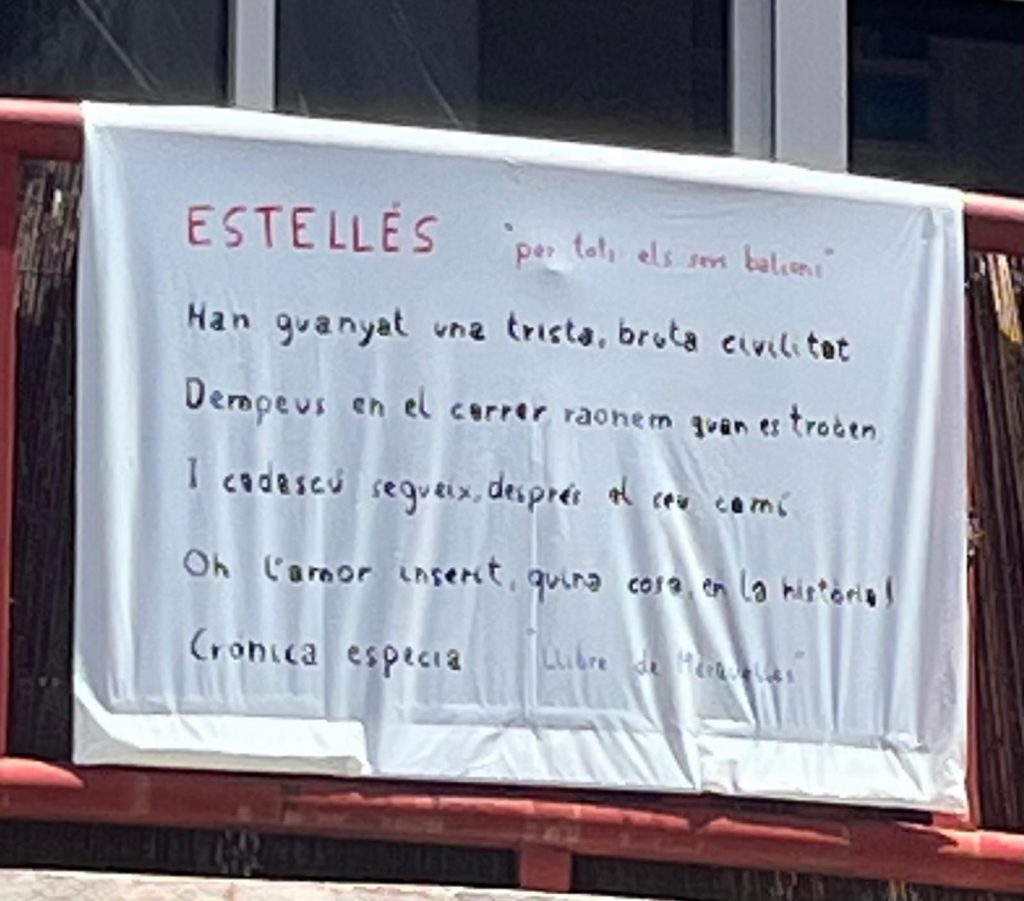 ESTELLÉS "per tots els seus balcons"
Han guanyat una trista, bruta civilitat
Dempeus en el carrer raonem quan es troben
I cadascú segueix, després el seu camí
Oh l'amor inserit, quina cosa, en la història!
Crònica especia "Llibre de Meravelles"